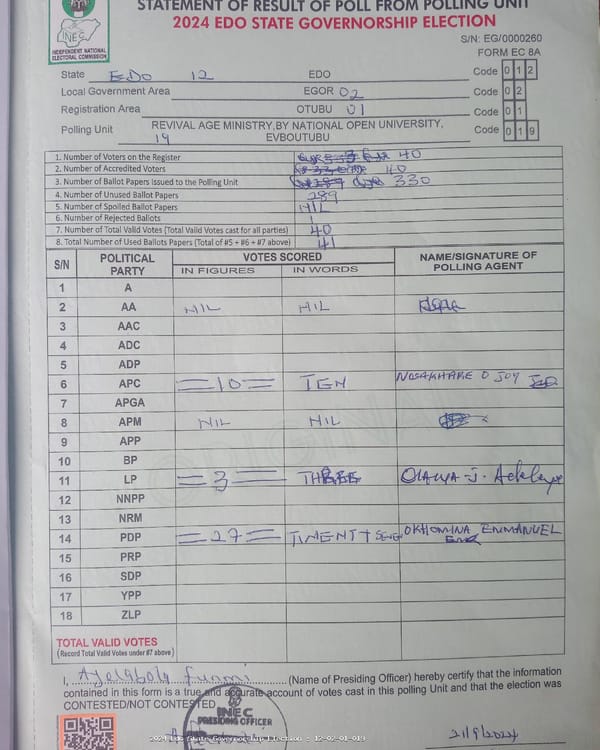 STATEMENT OF RESULT OF POLL FROM POLLING UNIT
2024 EDO STATE GOVERNORSHIP ELECTION
INEC
INDEPENDENT NATIONAL ELECTORAL COMMISSION
S/N: EG/0000260
FORM EC 8A
State EDO 12 EDO Code 0 1 2
Local Government Area EGOR 02 Code 0 2
Registration Area OTUBU 01 Code 0 1
Polling Unit 19 REVIVAL AGE MINISTRY,BY NATIONAL OPEN UNIVERSITY, EVBOUTUBU Code 0 1 9
1. Number of Voters on the Register 40
2. Number of Accredited Voters 40
3. Number of Ballot Papers Issued to the Polling Unit 330
4. Number of Unused Ballot Papers 289
5. Number of Spoiled Ballot Papers NIL
6. Number of Rejected Ballots 1
7. Number of Total Valid Votes (Total Valid Votes cast for all parties) 40
8. Total Number of Used Ballots Papers (Total of #5 + #6 + #7 above) 41
S/N POLITICAL PARTY VOTES SCORED NAME/SIGNATURE OF POLLING AGENT
IN FIGURES IN WORDS
1 A
2 AA NIL NIL
3 AAC
4 ADC
5 ADP
6 APC =10= TEN NOSAKHARE O JOY
7 APGA
8 APM NIL NIL
9 APP
10 BP
11 LP =3=
12 NNPP
13 NRM
14 PDP =27= OKHOMINA EMMANUEL
15 PRP
16 SDP
17 YPP
18 ZLP
TOTAL VALID VOTES
(Record Total Valid Votes under #7 above)
I, Funmi (Name of Presiding Officer) hereby certify that the information
contained in this form is a true and accurate account of votes cast in this polling Unit and that the election was
CONTESTED/NOT CONTESTED
INEC
PRESIDING OFFICER
2024 Edo State Governorship Election - 12-02-01-019
21/9/2024